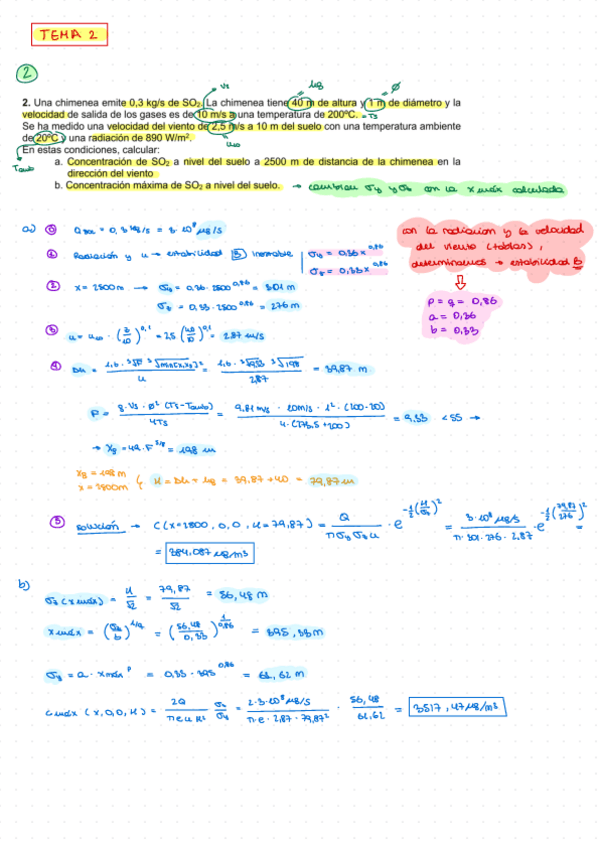 TEMA 2
2
Vs hg ∅
2. Una chimenea emite 0,3 kg/s de SO2. La chimenea tiene 40 m de altura y 1 m de diámetro y la
velocidad de salida de los gases es de 10 m/s a una temperatura de 200ºC. = Ts
Se ha medido una velocidad del viento de 2,5 m/s a 10 m del suelo con una temperatura ambiente
de 20ºC y una radiación de 890 W/m2.
u10
En estas condiciones, calcular:
Tamb
a. Concentración de SO2 a nivel del suelo a 2500 m de distancia de la chimenea en la
dirección del viento
b. Concentración máxima de SO2 a nivel del suelo. → cambian σy y σz con la x máx calculada
con la radiación y la velocidad
del viento (tablas),
determinamos → estabilidad B
p = q = 0,86
a = 0,36
b = 0,33
a) 0 = 0,3 kg/s = 3·10⁸ µg/s
1 Radiación y u → estabilidad B inestable σy = 0,36x^0,86
σz = 0,33x^0,86
2 x = 2500m → σy = 0,36·2500^0,86 = 301 m
σz = 0,33·2500^0,86 = 276 m
3 u = u10 · = 2,5 (40/10)^0,1 = 2,87 m/s
4 Δh = = 39,87 m
F = g·Vs·∅²(Ts-Tamb)/4Ts = 9,81 m/s·10m/s·1²·(200-20)/4·(273,5+200) = 9,33 < 55 →
→ Xg = 49·F^5/8 = 198 m
xg = 198 m
x = 2500m { H = Δh = hg + 39,87+40 = 79,87 m
5 solución → C(x=2500,0,0,H=79,87) = Q/πσyσzu · e^-1/2(H/σz)² = 3·10⁸ µg/s/π·301·276·2,87 · e^-1/2(79,87/276)² =
= 384,087 µg/m3
b)
σz (x máx) = H/√2 = 79,87/√2 = 56,48 m
x máx = (σz/b)^1/q = (56,48/0,33)^1/0,86 = 395,33m
σy = a · x máx^p = 0,33·395^0,86 = 61,62 m
c máx (x,0,0,H) = 2Q/πeuH² σz/σy = 2·3·10⁸ µg/s/π·e·2,87·79,87² · 56,48/61,62 = 3517,47 µg/m3